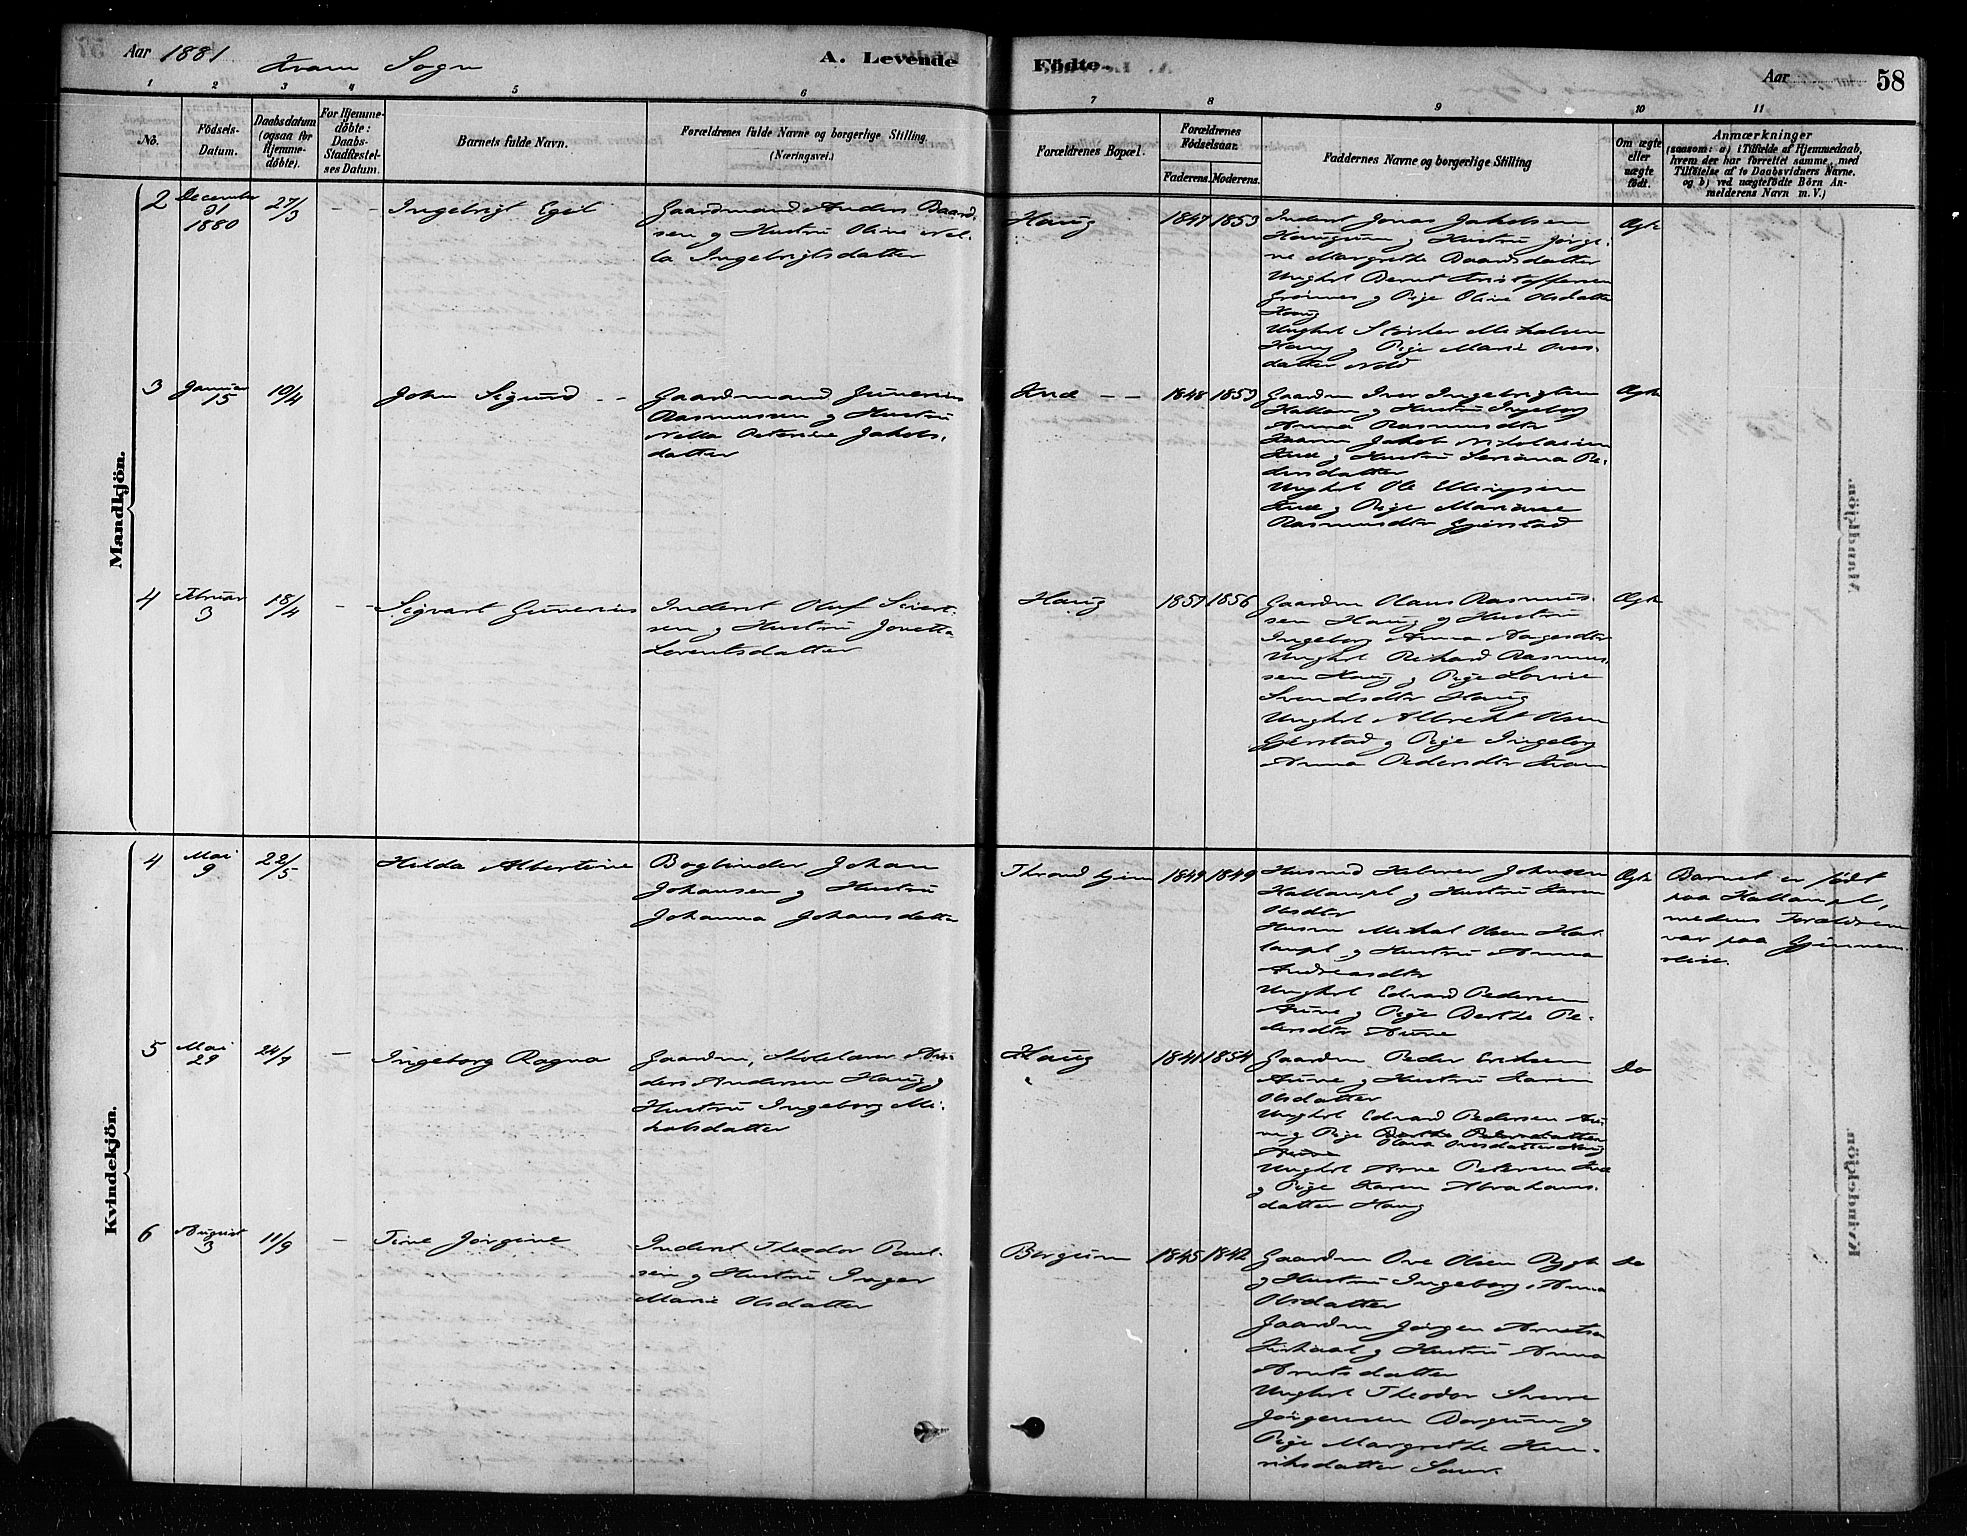 Aar 1881 Kvam Sogn
A. Levende
Fødte.
Aar
58
1 2 3 4 5 6 7 8 9 10 11
No.
Fødsels-
Datum.
Daabsdatum
(ogsaa for
Hjemme-
døbte).
For Hjemme-
døbte:
Daabs-
Stadfæstel-
ses Datum.
Barnets fulde Navn.
Forældrenes fulde Navne og borgerlige Stilling.
(Næringsvei.)
Forældrenes Bopæl.
Forældrenes
Fødselsaar.
Faderens. Moderens.
Faddernes Navne og borgerlige Stilling
Om ægte
eller
uægte
født.
Anmærkninger
(saasom: a) i Tilfælde af Hjemmedaab,
hvem der har forrettet samme, med
Tilføielse af to Daabsvidners Navne.
og b) ved uægtefødte Børn An-
melderens Navn m. V.)
Mandkjön.
2
December
31
1880
27/3
- -
Ingebrigt Egil
Gaardmand Anders Baard-
sen og Hustru Oline Nel-
la Ingebrigtsdatter
Haug
1847 1853
Inderst Jonas Jakobsen
Haugum og Hustru Jørgi-
ne Margrethe Baardsdatter
Ungkl Bernt Kristoffersen
Grønnes og Pige Oline Olsdatter
Haug
Ungkl Mikalsen
Haug og Pige Marie Oves-
datter
Ægte
3
Januar
15
10/4
- -
John Sigurd - -
Gaardmand Gunerius
Rasmussen og Hustru
Nella Peterine Jakobs-
datter
Five
1848 1853
Gaardm Iver Ingebrigtsen
Hallam og Hustru Ingeborg
Anna Rasmusdtr
Gaardm Jakob Nikolaisen
og Hustru Seriana Pe-
dersdatter
Ungkl Ole Ellingsen
og Pige Marianne
Rasmusdtr Gjerstad
Ægte
4
Februar
3
18/4
- -
Sigvart Gunerius
Inderst Oluf Sivert-
sen og Hustru Jonetta
Lorentsdatter
Haug
1857 1856
Gaardm Olaus Rasmus-
sen Haug og Hustru
Ingeborg Anna Aagesdtr
Ungkl Rikard Rasmus-
sen Haug og Pige Lovise
Svendsdtr Haug
Ungkl Albrekt Olsen
Gjerstad og Pige Ingeborg
Anna Pedersdtr Kvam
Ægte
Kvindekjön.
4
Mai
9
22/5
Hilda Albertine
Bogbinder Johan
Johansen og Hustru
Johanna Johansdatter
Throndhjem
1849 1849
Husmd Helmer Johnsen
Hallampl og Hustru Karen
Olsdtr
Husm Mikal Olsen Hal-
lampl og Hustru Anna
Andreasdtr
Ungkl Edvard Pedersen
Aune og Pige Berthe Pe-
dersdtr Aune
Ægte
Barnet er født
paa Hallampl,
medens Forældrene
var paa Gjennem-
reise.
5
Mai
29
24/7
-
Ingeborg Ragna
Gaardm, Skolelærer An-
ders Andersen Haug og
Hustru Ingeborg Mi-
kalsdatter
Haug
1841 1854
Gaardm Peder Eriksen
Aune og Hustru Karen
Olsdatter
Ungkl Edvard Pedersen Au-
ne og Pige Berthe Pedersdatter
Olava Ovesdatter Haug
Aune
Ungkl Arne Petersen
og Pige Karen Abrahams-
datter Haug
Do
6
August
3
11/9
-
Tine Jørgine
Inderst Theodor Paul-
sen og Hustru Inger
Marie Olsdatter
Borgum
1845 1842
Gaardm Ove Olsen Rygh
og Hustru Ingeborg Anna
Olsdatter
Gaardm Jørgen Arntsen
og Hustru Anna
Arntsdatter
Ungkl Theodor Sverre
Jørgensen Borgum og
Pige Margrethe Hen-
riksdatter
Do